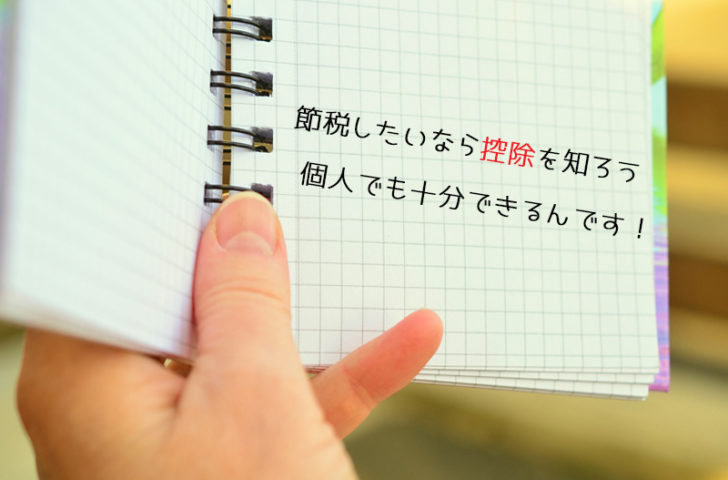 節税したいなら控除を知ろう
個人でも十分できるんです！